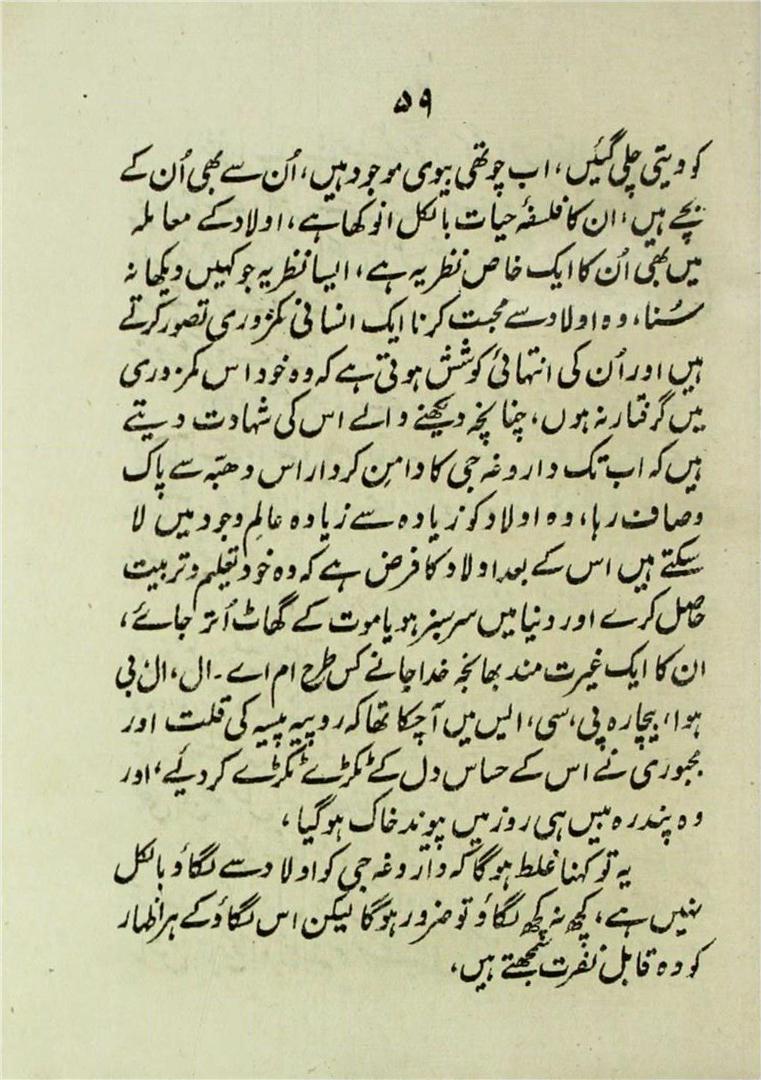 ۵۹
کو دیتی چلی گئیں، اب چوتھی بیوی موجود ہیں، اُن سے بھی اُن کے
بچے ہیں، ان کا فلسفۂ حیات بالکل انوکھا ہے، اولاد کے معاملہ
میں بھی اُن کا ایک خاص نظریہ ہے، ایسا نظریہ جو کہیں دیکھا نہ
سُنا، وہ اولاد سے محبت کرنا ایک انسانی کمزوری تصور کرتے
ہیں اور اُن کی انتہائی کوشش ہوتی ہے کہ وہ خود اس کمزوری
میں گرفتار نہ ہوں، چنانچہ دیکھنے والے اس کی شہادت دیتے
ہیں کہ اب تک داروغہ جی کا دامنِ کردار اس دھبّہ سے پاک
وصاف رہا، وہ اولاد کو زیادہ سے زیادہ عالمِ وجود میں لا
سکتے ہیں اس کے بعد اولاد کا فرض ہے کہ وہ خود تعلیم و تربیت
حاصل کرے اور دنیا میں سرسبز ہو یا موت کے گھاٹ اُتر جائے،
ان کا ایک غیرت مند بھانجہ خدا جانے کس طرح ام اے ۔ ال، ال بی
ہوا، بیچارہ پی، سی، ایس میں آ چکا تھا کہ روپیہ پیسہ کی قلت اور
مجبوری نے اس کے حساس دل کے ٹکڑے ٹکڑے کر دیئے، اور
وہ پندرہ بیس ہی روز میں پیوند خاک ہو گیا،
یہ تو کہنا غلط ہو گا کہ داروغہ جی کو اولاد سے لگاؤ بالکل
نہیں ہے، کچھ نہ کچھ لگاؤ تو ضرور ہو گا لیکن اس لگاؤ کے ہر اظہار
کو وہ قابل نفرت سمجھتے ہیں،